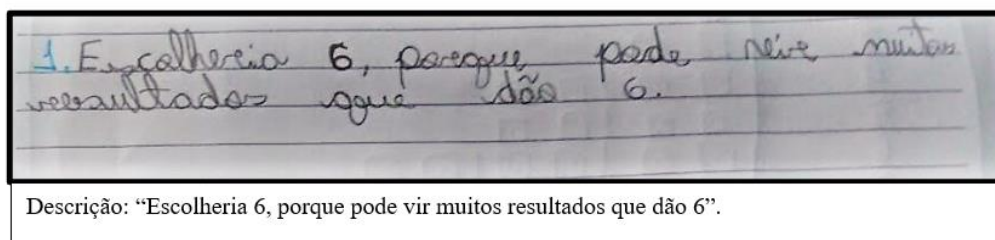 1. Escolheria 6, poreque pode veire muitos
reesultados que dão 6.
Descrição: “Escolheria 6, porque pode vir muitos resultados que dão 6”.